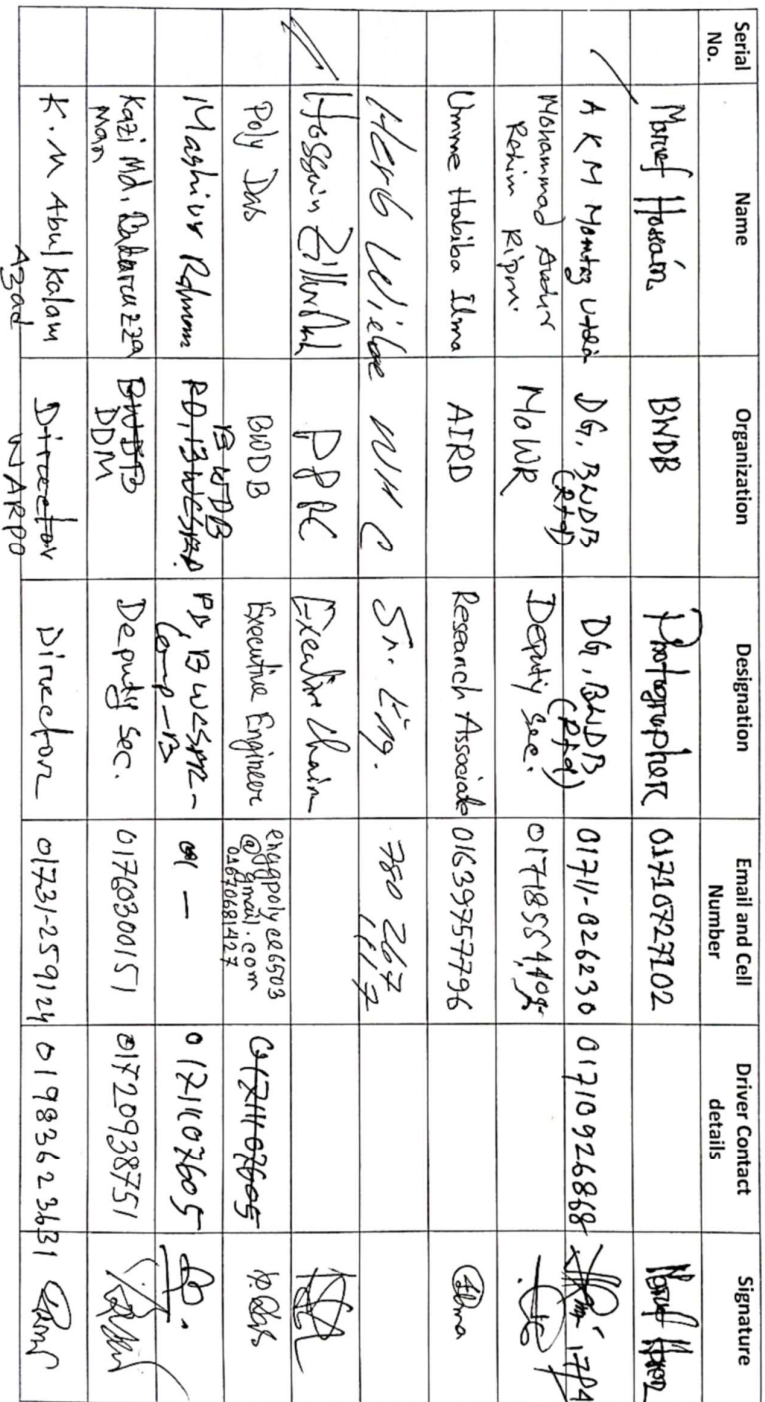 Serial No. Name Organization Designation Email and Cell Number Driver Contact details Signature
Maruf Hossain BWDB Photographer 01710727202
A K M Momtaz Uddin DG, BWDB (Rtd) DG, BWDB (Rtd) 01711-026230 01710926868
Mohammad Abdur Rahim Ripon MoWR Deputy Sec.
Umme Habiba Ilma AIRD Research Associate 01639757796 Ilma
Herb Wiebe NHC Sr. Eng. 780 267
Hossain Zillur PPRC Executive Chair
Poly Das BWDB Executive Engineer enggpolyce6503@gmail.com 01670681427 01711107605
Mashiur Rahman BWDB PD, BWCSRP- Comp-B 01711107605
Kazi Md. man DDM Deputy Sec. 01760300151 01720938751
K. M Abul Kalam Azad Director WARPO Director 01731-259124 01983623631